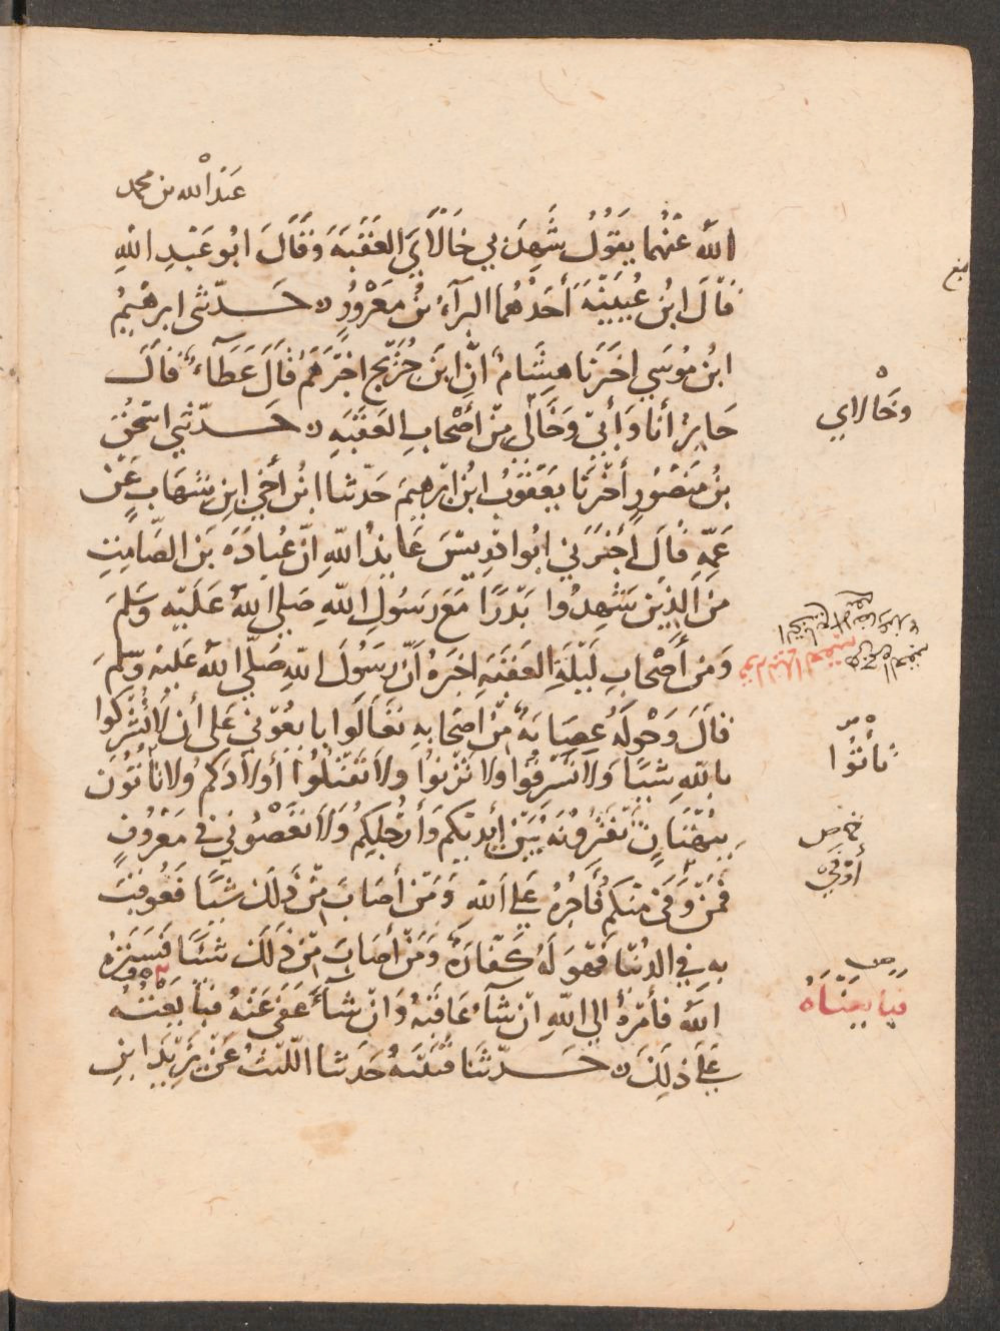 عبد الله بن محمد
الله عنهما يقول شهد بي خالاي العقبة وقال ابو عبد الله
قال ابن عيينة أحدهما البراء بن معرور حدثني ابرهيم
ابن موسي اخبرنا هشام ان ابن جريج اخبرهم قال عطاء قال
جابر أنا وأبي وخالي من أصحاب العقبة حدثني اسحق
بن منصور أخبرنا يعقوب ابن ابرهيم حدثنا ابن أخي ابن شهاب عن
عمه قال أخبرني ابو ادريس عايذ الله ان عبادة بن الصامت
من الذين شهدوا بدرا مع رسول الله صلي الله عليه وسلم
ومن أصحاب ليلة العقبة اخبره أن رسول الله صلي الله عليه وسلم
قال وحوله عصابة من اصحابه تعالوا بايعوني علي أن لا تشركوا
بالله شيئا ولا تسرقوا ولا تزنوا ولا تقتلوا أولادكم ولا تأتون
ببهتان تفترونه بين أيديكم وأرجلكم ولا تعصوني في معروف
فمن وفي منكم فأجره علي الله ومن أصاب من ذلك شيئا فعوقب
به في الدنيا فهو له كفارة ومن أصاب من ذلك شيئا فستره
الله فأمره الي الله ان شاء عاقبه وان شاء عفي عنه فبايعته
علي ذلك حدثنا قتيبة حدثنا الليث عن يزيد ابن
وخالاي
تأتوا
أوفي
فبايعناه